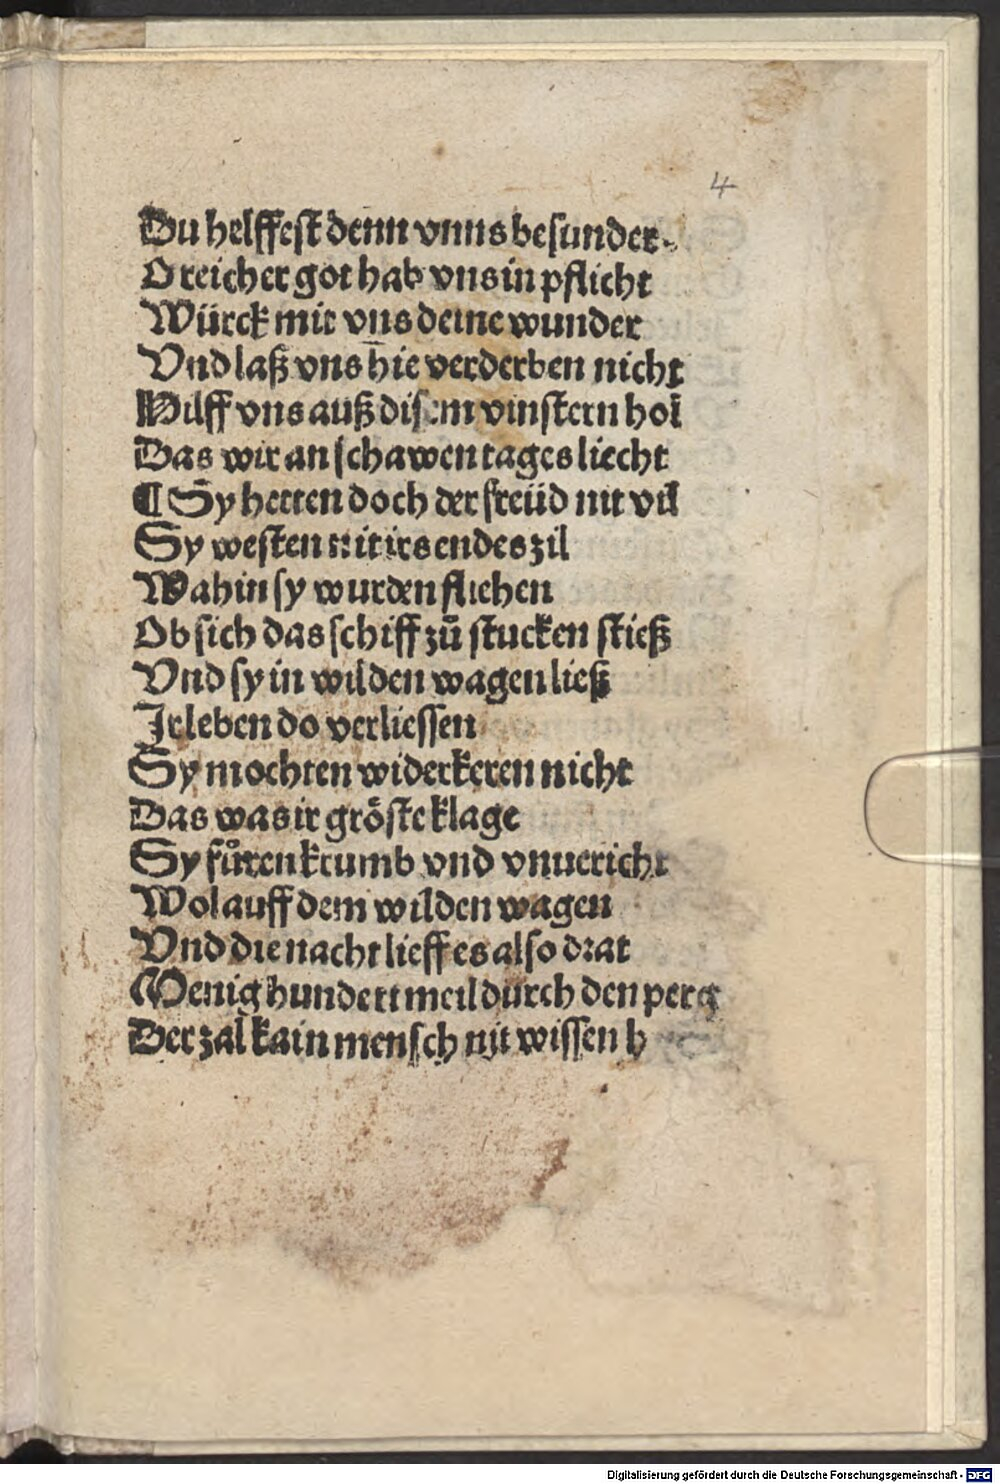 4
Du helffest denn vnns besunder
O reicher got hab vns in pflicht
Würck mit vns deine wunder
Vnd laß vns hie verderben nicht
Hilff vns auß disem vinstern hol
Das wir an schawen tages liecht
¶ Sy hetten doch der freüd nit vil
Sy westen nit irs endes zil
Wahin sy wurden fliehen
Ob sich das schiff zů stucken stieß
Vnd sy in wilden wagen ließ
Ir leben do verliessen
Sy mochten widerkeren nicht
Das was ir gröste klage
Sy fůren krumb vnd vnuericht
Wol auff dem wilden wagen
Vnd die nacht lieff es also drat
Menig hundert meil durch den perg
Der zal kain mensch nit wissen h
Digitalisierung gefördert durch die Deutsche Forschungsgemeinschaft - DFG